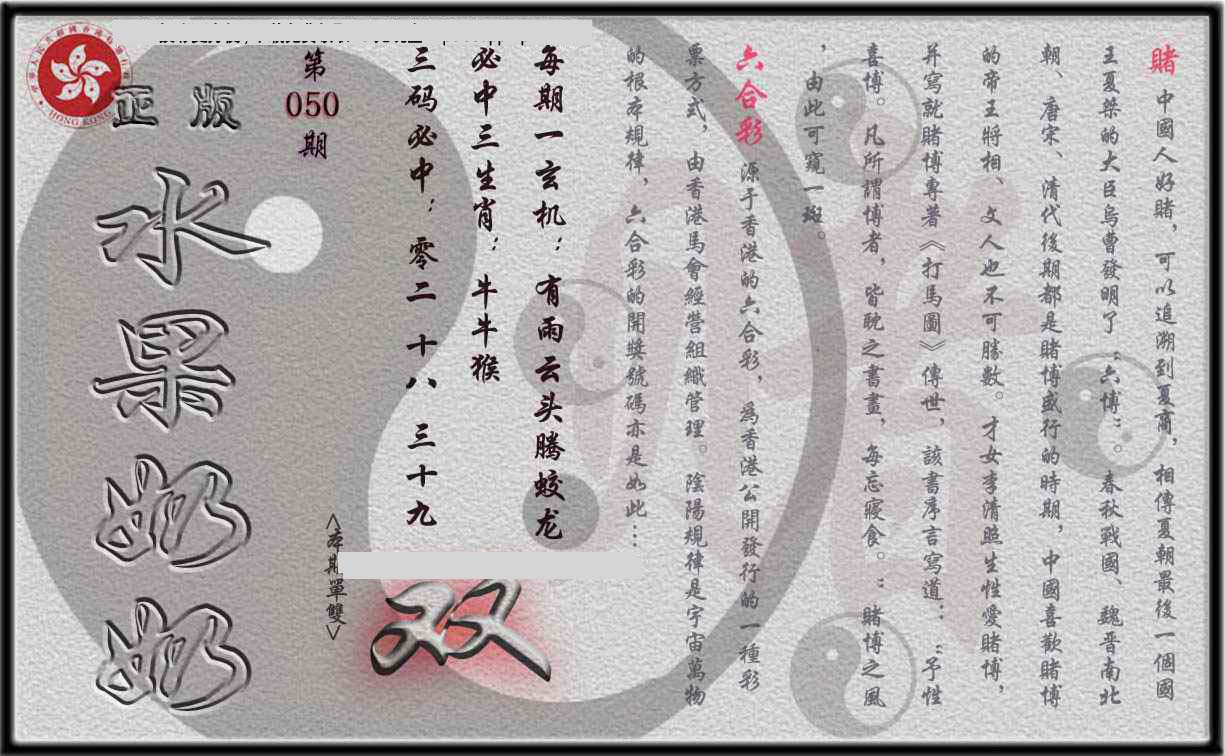 賭 中國人好賭，可以追溯到夏商，相傳夏朝最後一個國
王夏桀的大臣烏曹發明了“六博”。春秋戰國、魏晉南北
朝、唐宋、清代後期都是賭博盛行的時期，中國喜歡賭博
的帝王將相、文人也不可勝數。才女李清照生性愛賭博，
并寫就賭博專著《打馬圖》傳世，該書序言寫道：“予性
喜博。凡所謂博者，皆耽之書畫，每忘寢食。”賭博之風
，由此可窺一斑。
六合彩 源于香港的六合彩，為香港公開發行的一種彩
票方式，由香港馬會經營組織管理。陰陽規律是宇宙萬物
的根本規律，六合彩的開獎號碼亦是如此…
每期一玄机：有雨云头腾蛟龙
必中三生肖：牛牛猴
三码必中：零二 十八 三十九
<本期單雙>
双
第
050
期
正版
水果奶奶
HONG KONG